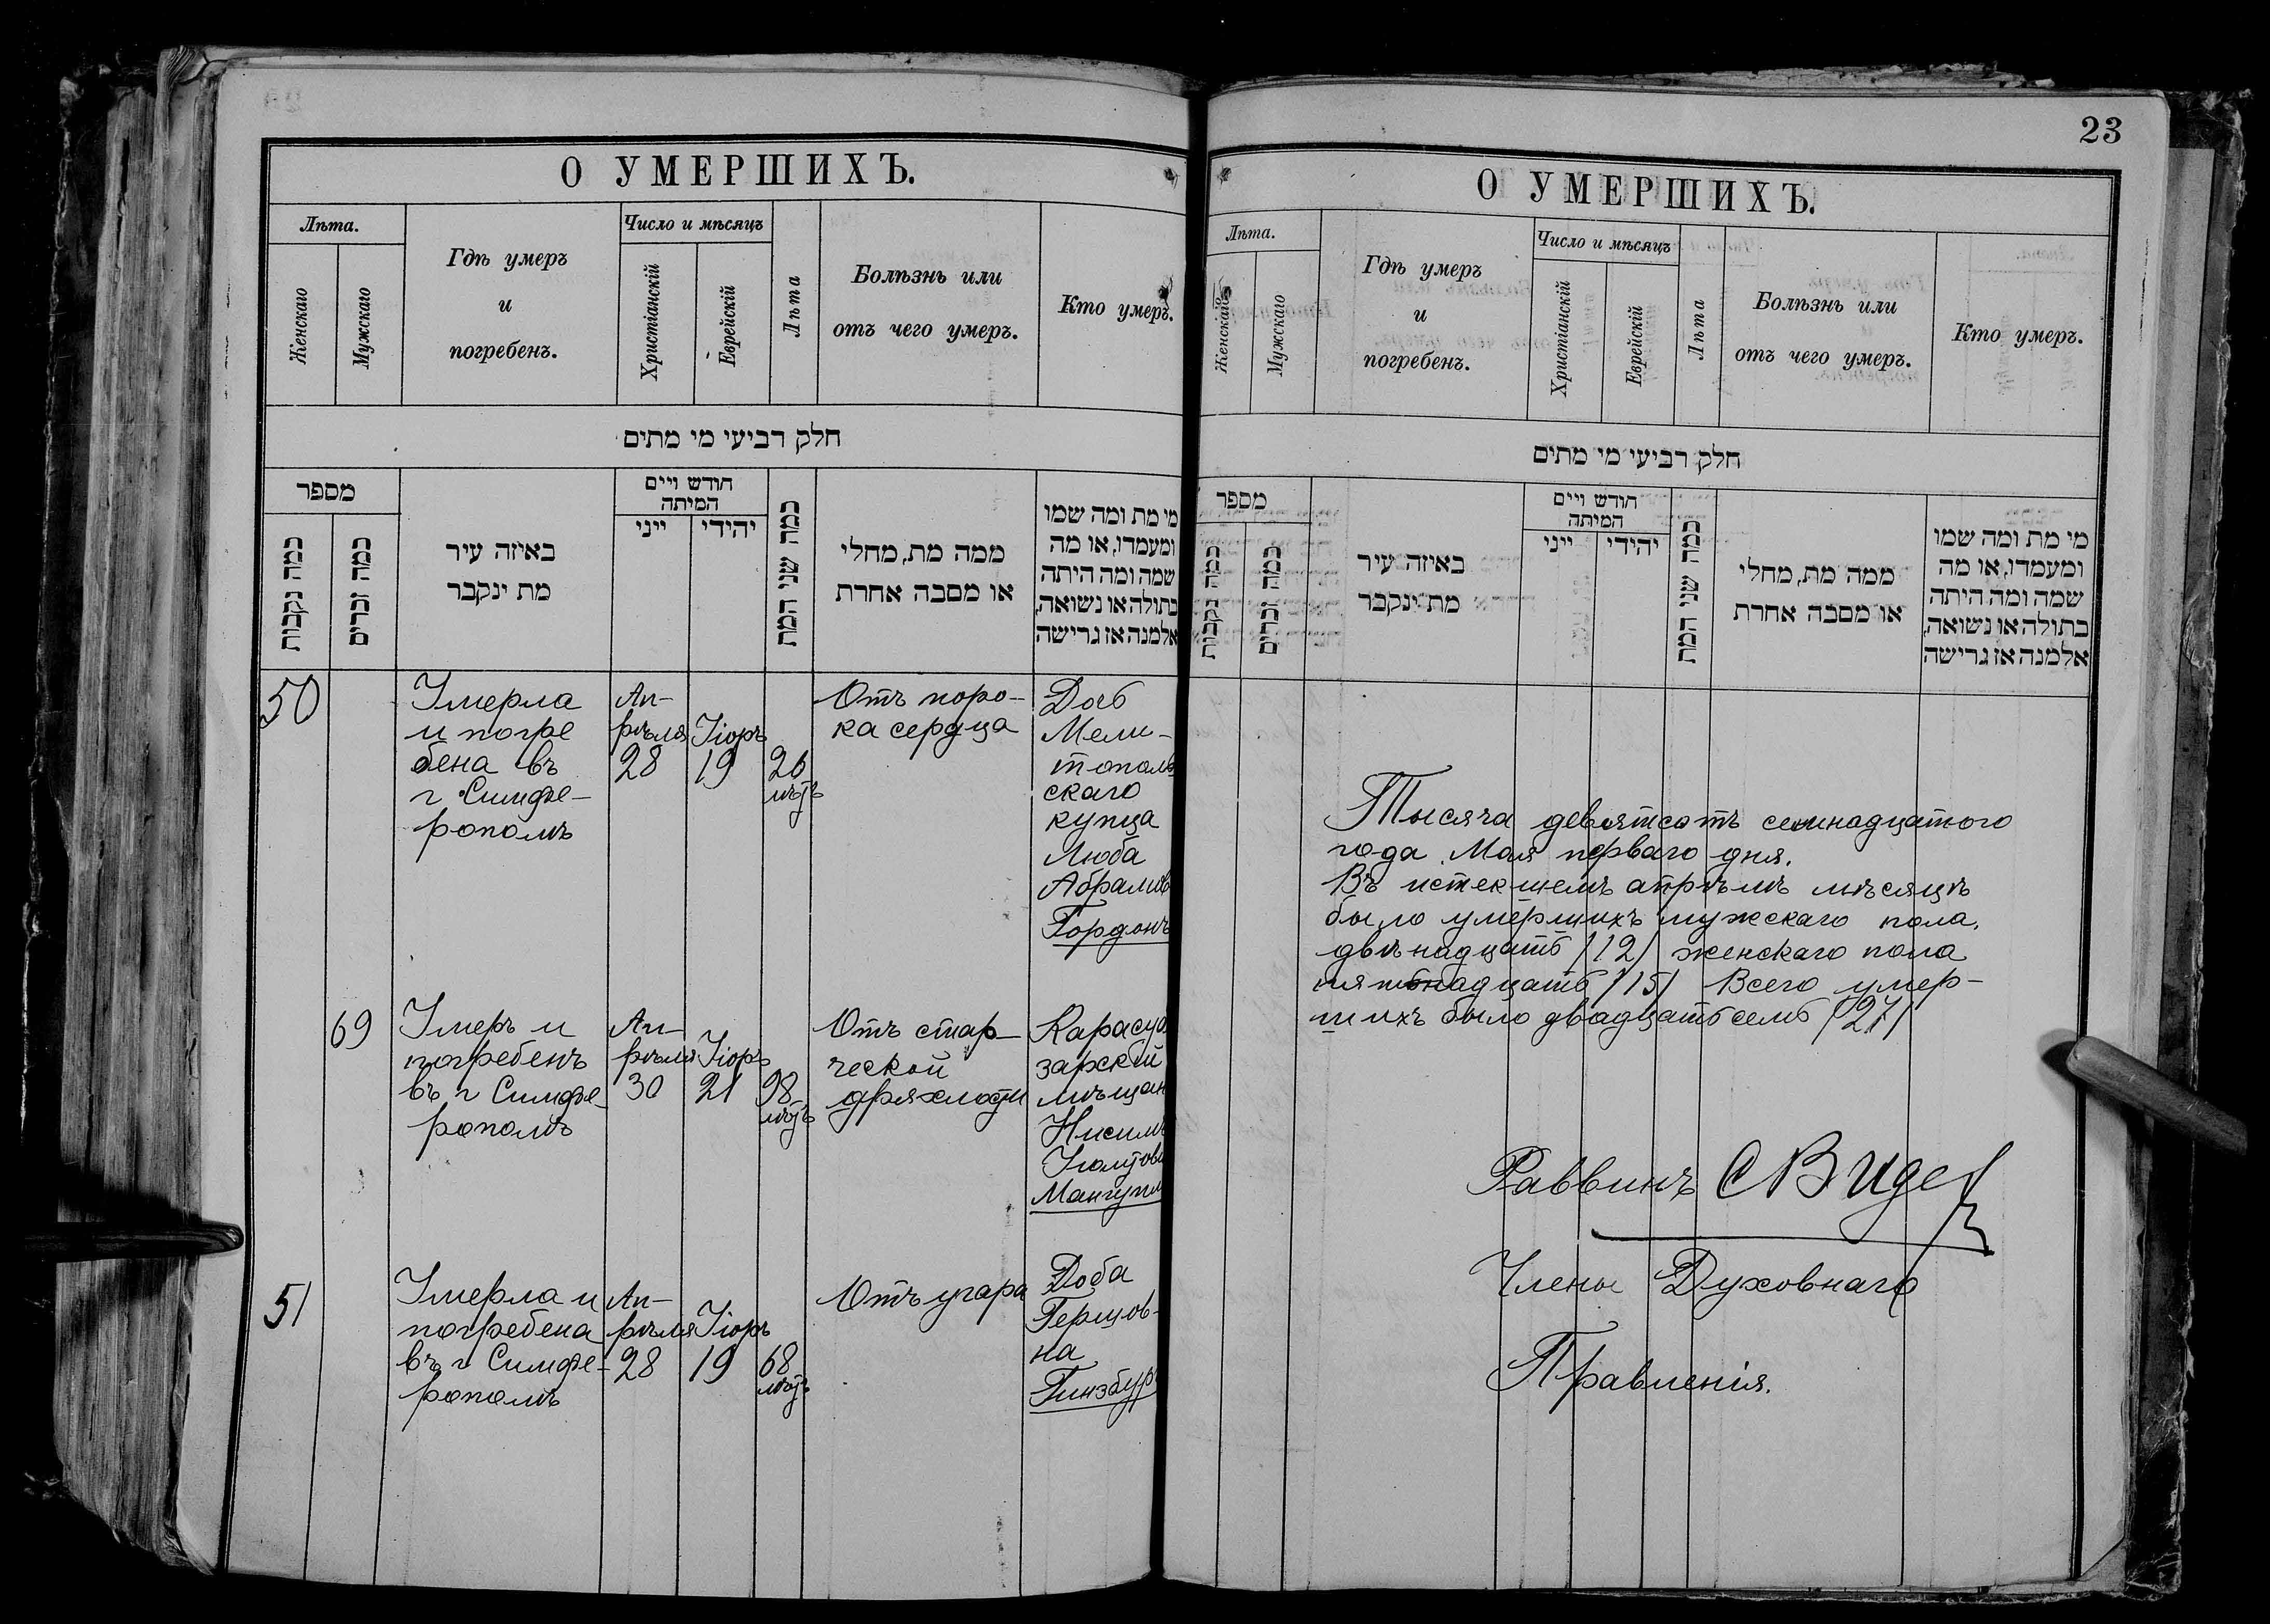 О УМЕРШИХЪ.
Лѣта.
Женскаго
Мужскаго
Гдѣ умеръ
и
погребенъ.
Число и мѣсяцъ
Христіанскій
Еврейскій
Лѣта
Болѣзнь или
отъ чего умеръ.
Кто умеръ.
חלק רביעי מי מתים
מספר
כמה נקבות
כמה זכרים
באיזה עיר
מת ינקבר
חודש ויים
המיתה
ייני
יהידי
כמה שני המת
ממה מת, מחלי
או מסבה אחרת
מי מת ומה שמו
ומעמדו, או מה
שמה ומה היתה
בתולה או נשואה,
אלמנה אז גרישה
50
Умерла
и погре
бена въ
г Симфе-
рополѣ
Ап-
рѣля
28
Iіоръ
19
26
лѣтъ
Отъ поро-
ка сердца
Дочь
Мели-
тополь
скаго
купца
Люба
Абрамов
Гордонъ
69
Умеръ и
погребенъ
въ г Симфе-
рополѣ
Ап-
рѣля
30
Iіоръ
21
98
лѣтъ
Отъ стар-
ческой
дряхлости
Карасуба
зарскій
мѣщан
Нисимъ
Мангупли
51
Умерла и
погребена
въ г Симфе-
рополѣ
Ап-
рѣля
28
Iіоръ
19
68
лѣтъ
Отъ угара
Доба
Герцов-
на
Гинзбург
23
О УМЕРШИХЪ.
Лѣта.
Женскаго
Мужскаго
Гдѣ умеръ
и
погребенъ.
Число и мѣсяцъ
Христіанскій
Еврейскій
Лѣта
Болѣзнь или
отъ чего умеръ.
Кто умеръ.
חלק רביעי מי מתים
מספר
כמה נקבות
כמה זכרים
באיזה עיר
מת ינקבר
חודש ויים
המיתה
ייני
יהידי
כמה שני המת
ממה מת, מחלי
או מסבה אחרת
מי מת ומה שמו
ומעמדו, או מה
שמה ומה היתה
בתולה או נשואה,
אלמנה אז גרישה
Тысяча девятсотъ семнадцатого
года Мая перваго дня.
Въ истекшемъ апрѣлѣ мѣсяцѣ
было умершихъ мужскаго пола
двѣнадцать /12/ женскаго пола
пятьнадцать /15/ Всего умер-
шихъ было двадцать семь /27/
Раввинъ
Члены Духовнаго
Правленія.